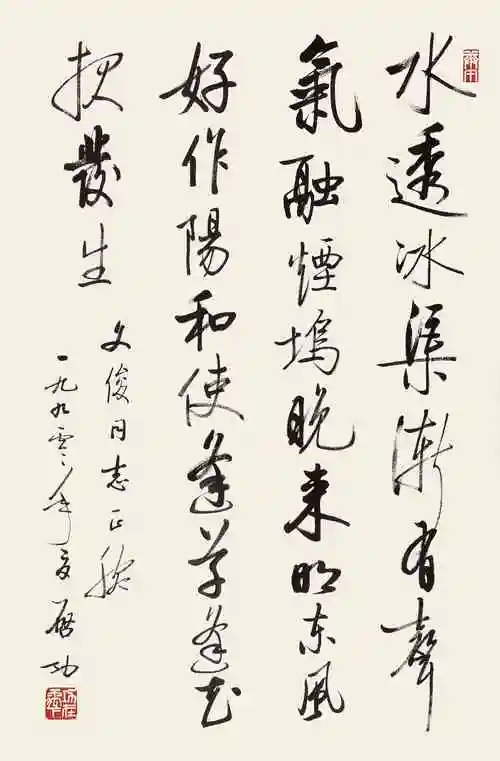 水透冰渠漸有聲
氣融煙塢晚来明东風
好作陽和使逢草逢花
报發生
文俊同志正腕
一九九零年夏 啟功